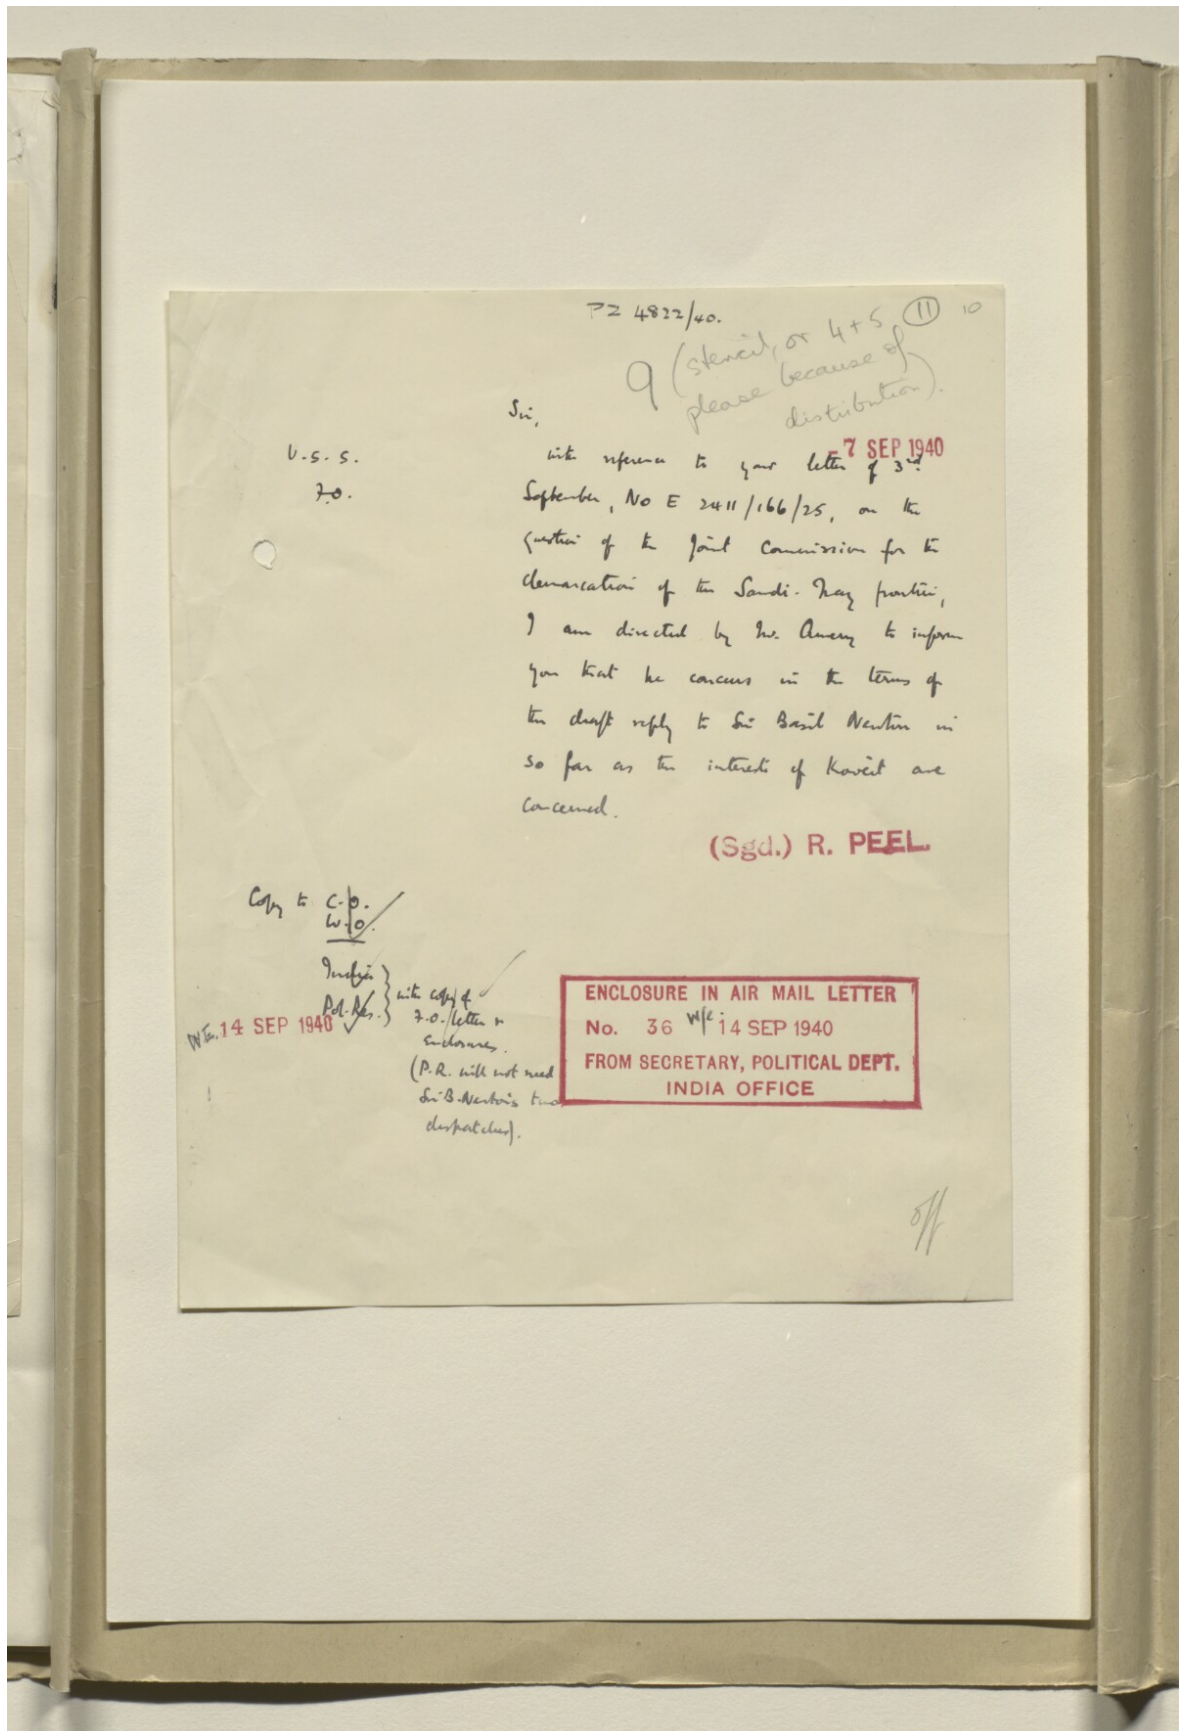 PZ 4822/40.
11 10
9 (stencil, or 4+5
please because of
distribution).
-7 SEP 1940
U.S.S.
F.O.
Sir,
with reference to your letter of 3rd
September, No E 2411/166/25, on the
question of the Joint Commission for the
demarcation of the Saudi-Iraq frontier,
I am directed by Mr. Amery to inform
you that he concurs in the terms of
the draft reply to Sir Basil Newton in
so far as the interests of Koweit are
concerned.
(Sgd.) R. PEEL.
Copy to C.O.
W.O.
India
Pol. Res.
14 SEP 1940
with copy of
F.O. letter &
enclosures.
(P.R. will not need
Sir B. Newton's two
despatches).
ENCLOSURE IN AIR MAIL LETTER
No. 36 W/E. 14 SEP 1940
FROM SECRETARY, POLITICAL DEPT.
INDIA OFFICE